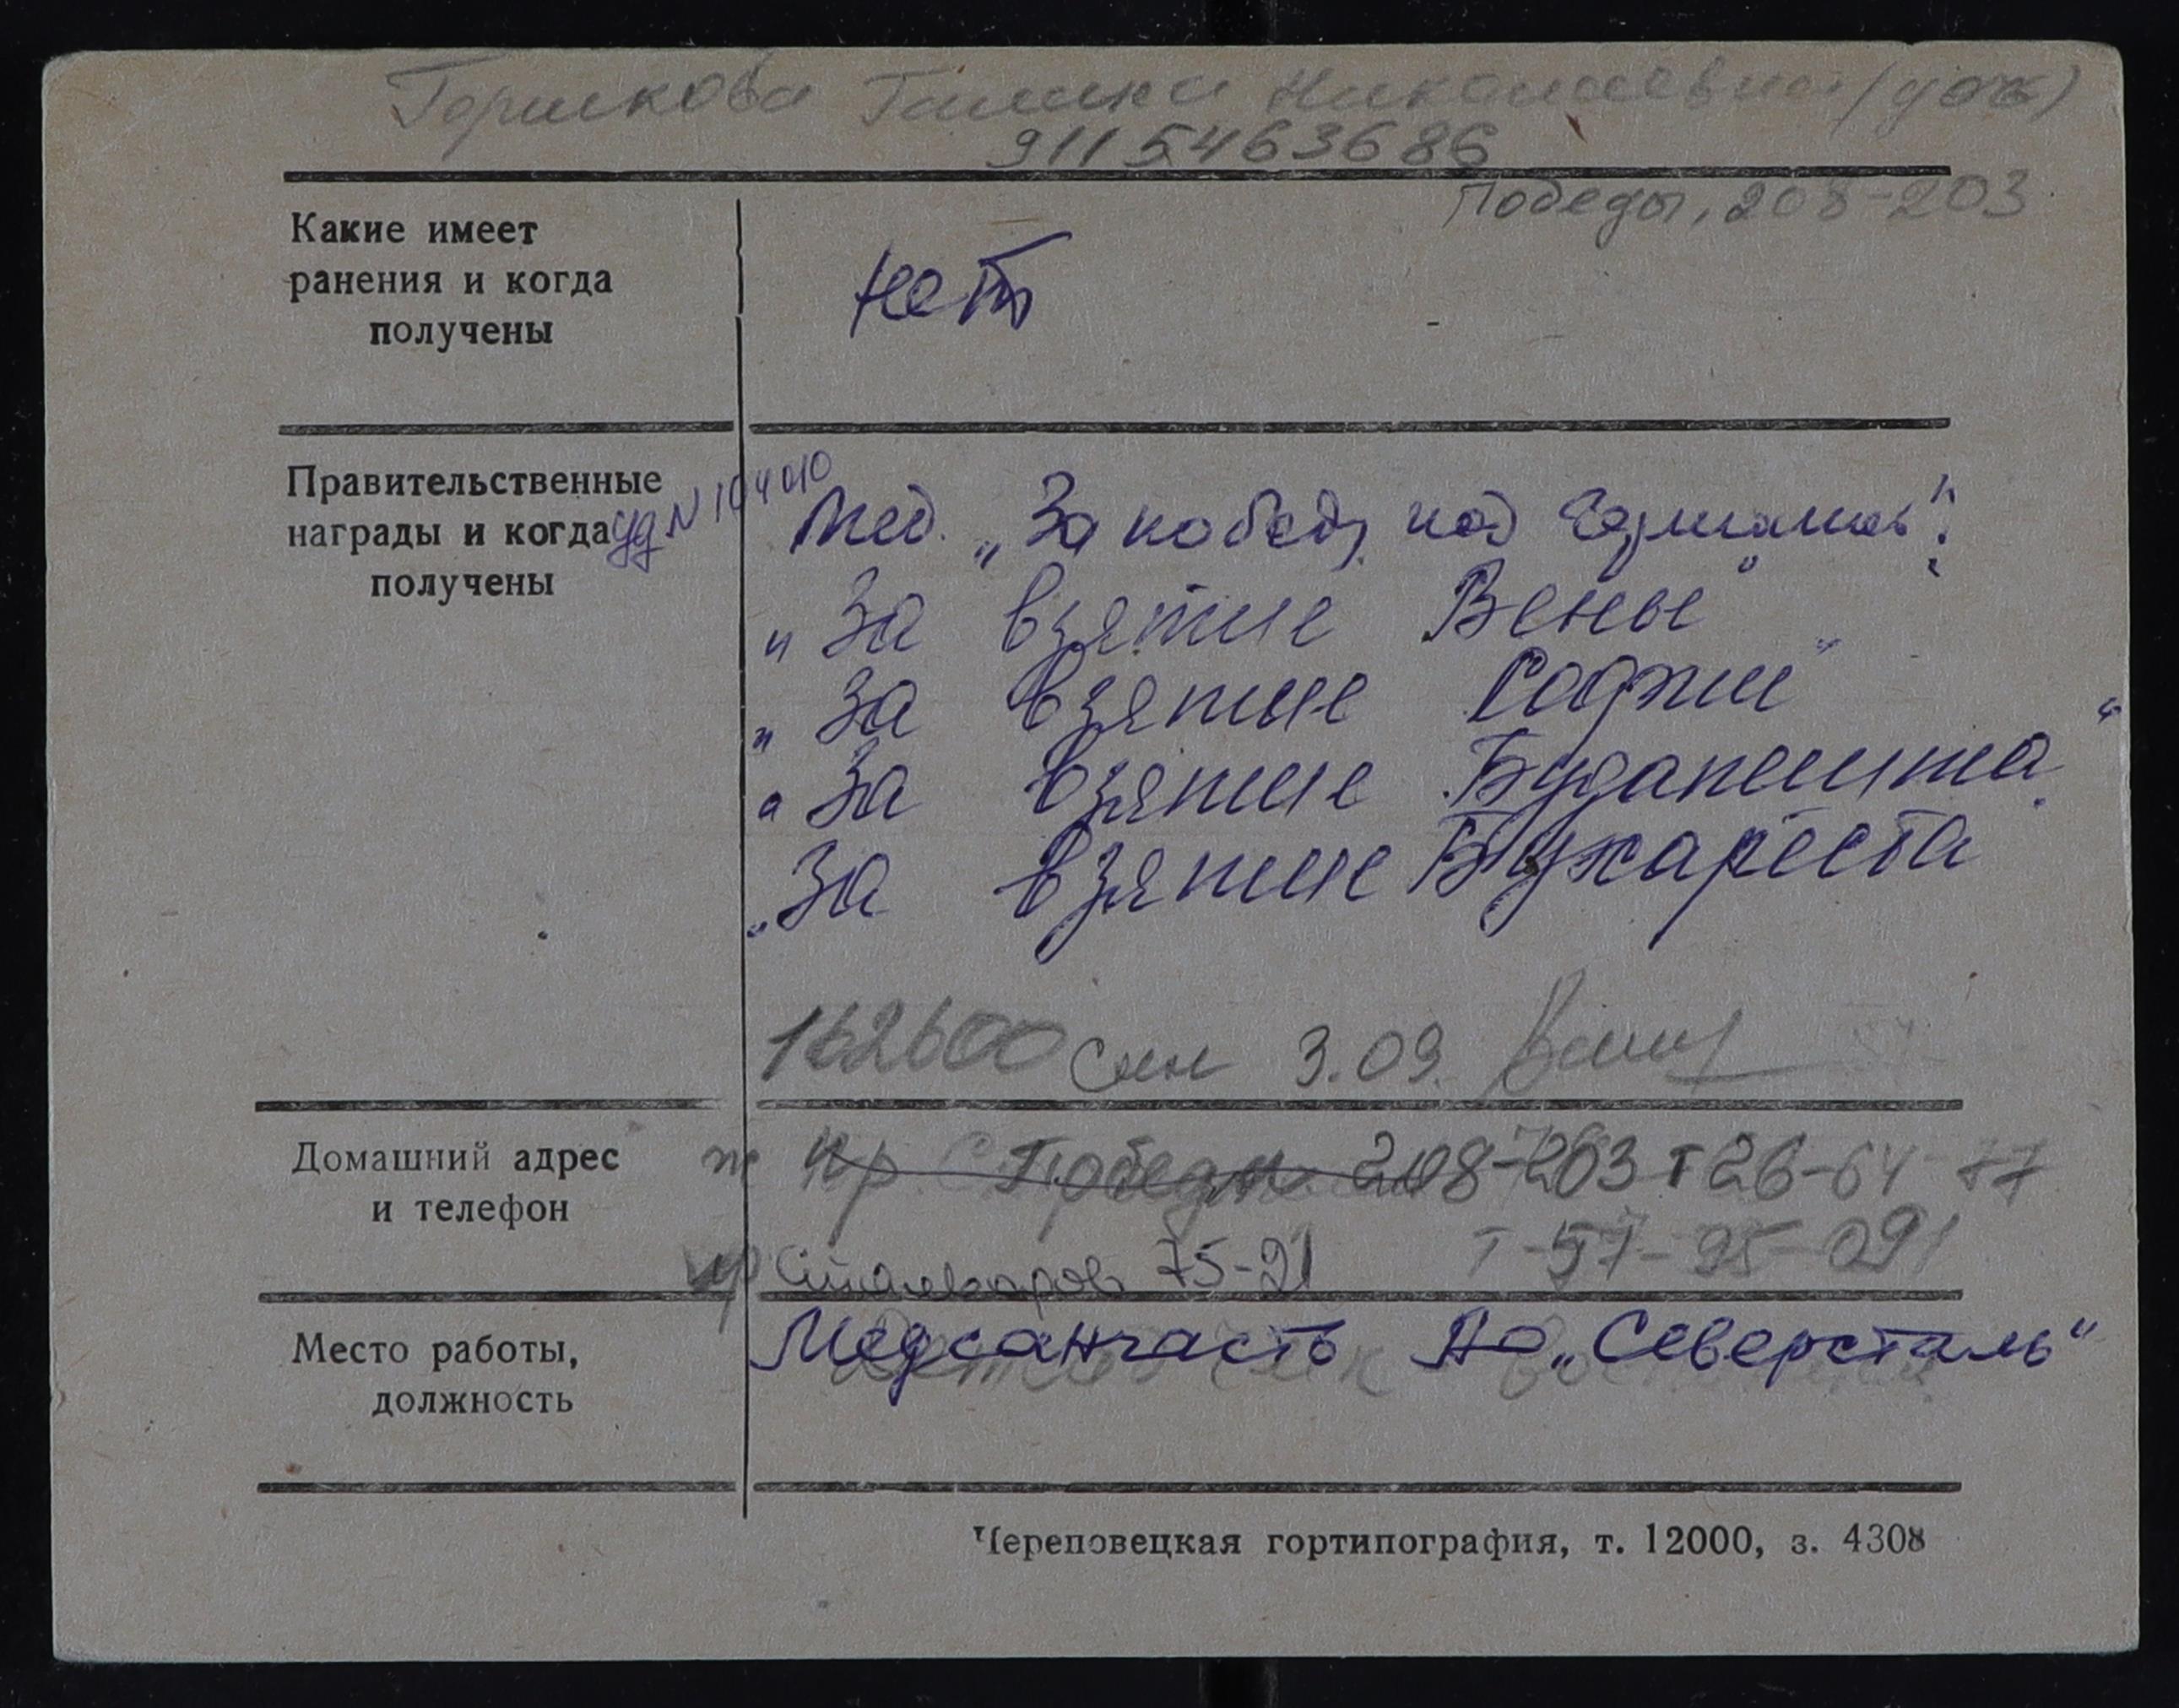 Горшкова Галина Николаевна (дочь)
9115463686
Победы, 208-203
Какие имеет
ранения и когда
получены
нет
Правительственные
награды и когда
получены
уд N 104010
Мед. „За победу над Германией":
„За взятие Вены"
„За взятие Софии"
„За взятие Будапешта"
„За взятие Бухареста
162600 3.09.
Домашний адрес
и телефон
пр. Победы 208-203 т 26-64-77
Т-57-95-091
Сталеваров 75-21
Место работы,
должность
Медсанчасть АО „Северсталь"
Череповецкая гортипография, т. 12000, з. 4308